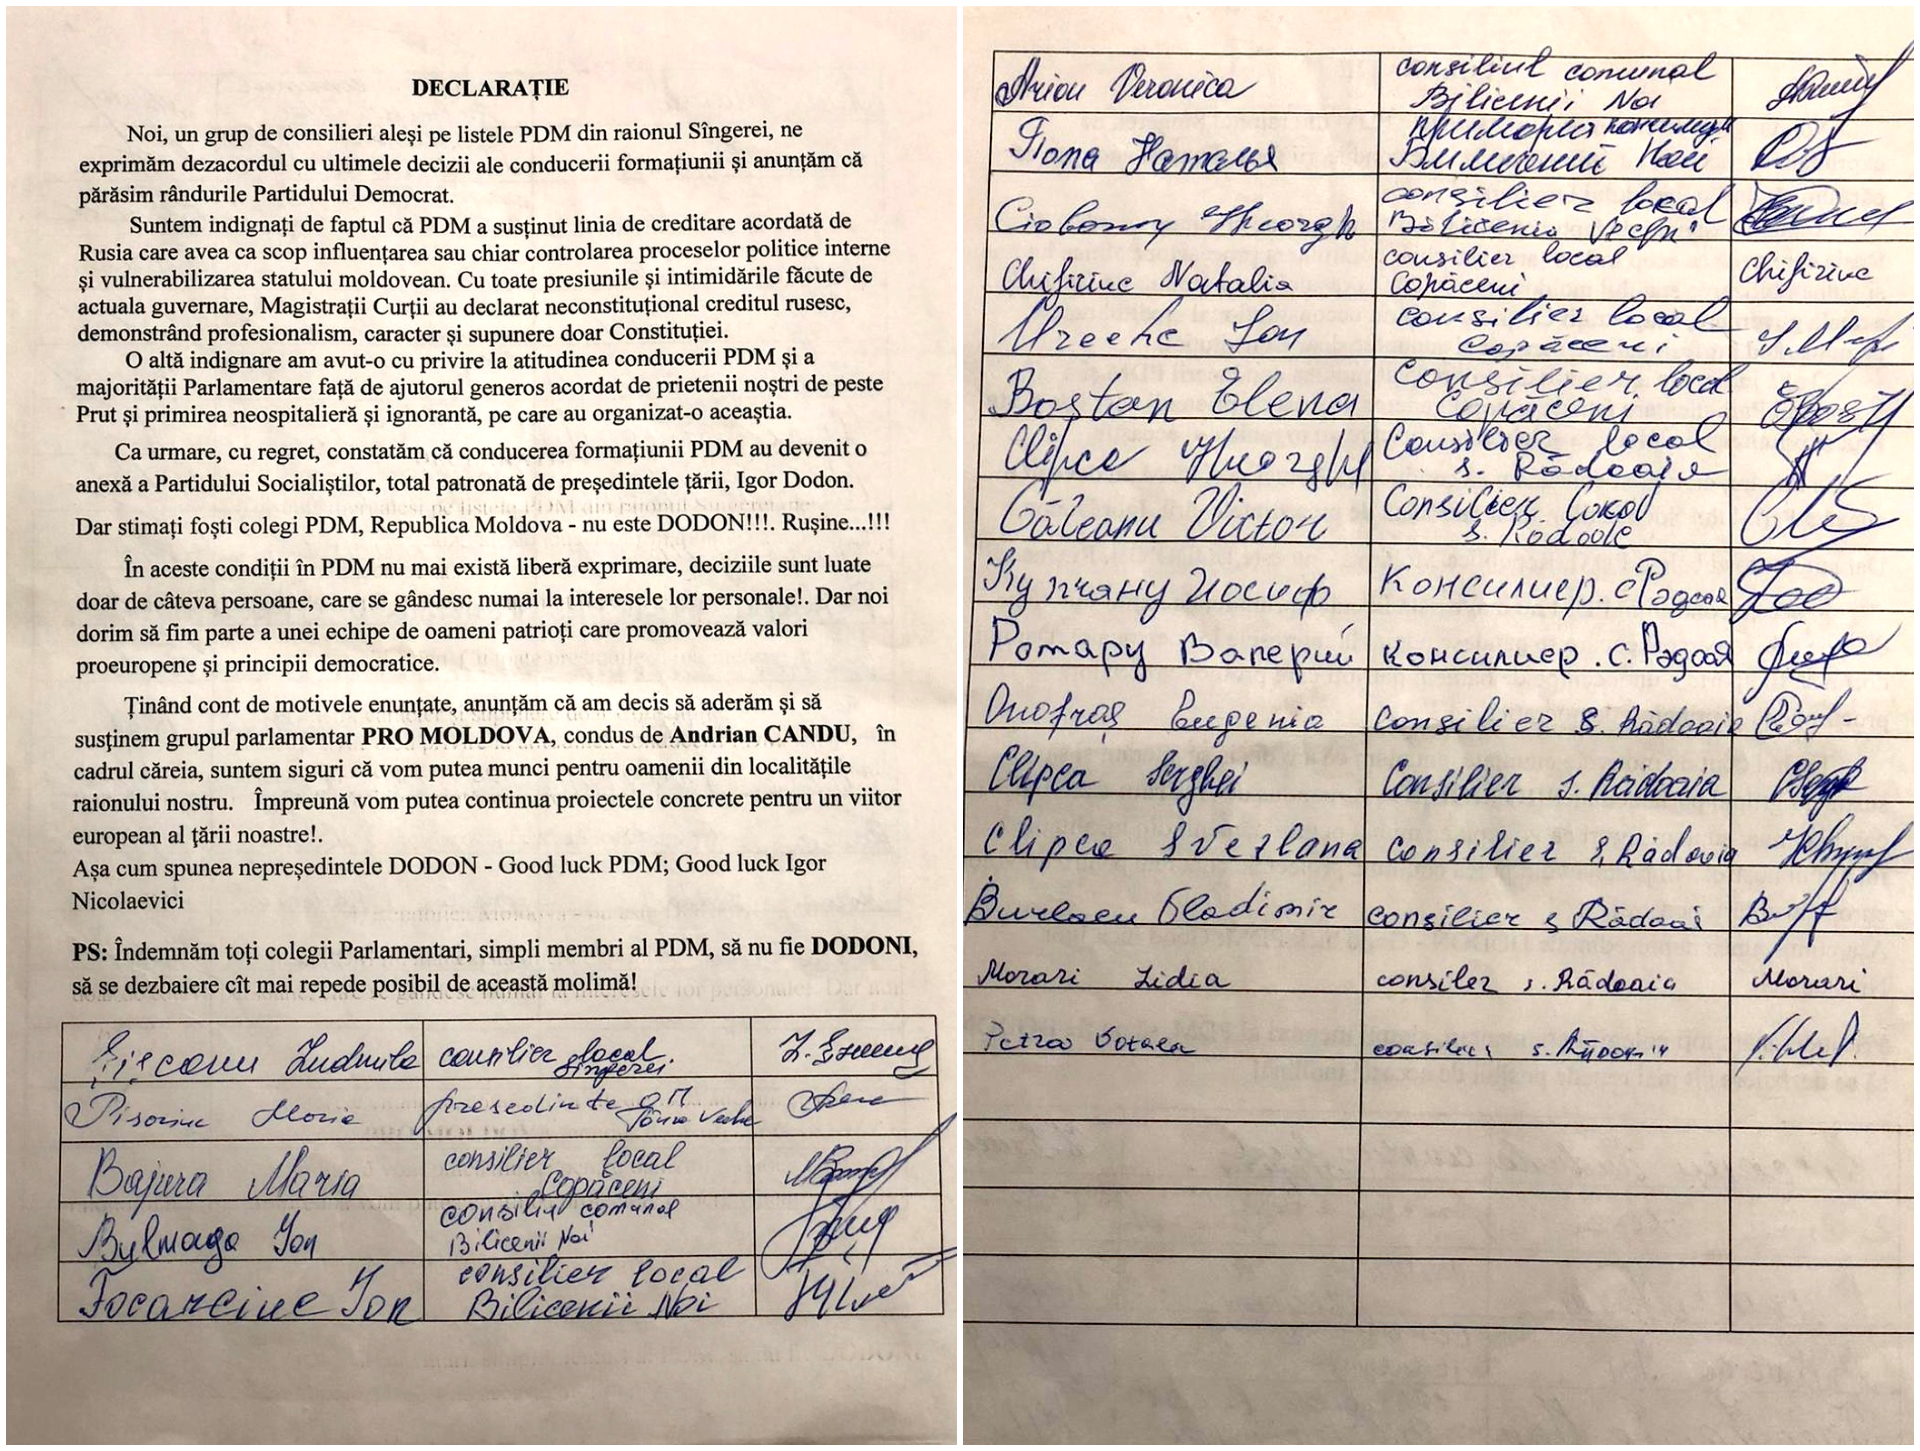 DECLARAȚIE
Noi, un grup de consilieri aleși pe listele PDM din raionul Sîngerei, ne
exprimăm dezacordul cu ultimele decizii ale conducerii formațiunii și anunțăm că
părăsim rândurile Partidului Democrat.
Suntem indignați de faptul că PDM a susținut linia de creditare acordată de
Rusia care avea ca scop influențarea sau chiar controlarea proceselor politice interne
și vulnerabilizarea statului moldovean. Cu toate presiunile și intimidările făcute de
actuala guvernare, Magistrații Curții au declarat neconstituțional creditul rusesc,
demonstrând profesionalism, caracter și supunere doar Constituției.
O altă indignare am avut-o cu privire la atitudinea conducerii PDM și a
majorității Parlamentare față de ajutorul generos acordat de prietenii noștri de peste
Prut și primirea neospitalieră și ignorantă, pe care au organizat-o aceaștia.
Ca urmare, cu regret, constatăm că conducerea formațiunii PDM au devenit o
anexă a Partidului Socialiștilor, total patronată de președintele țării, Igor Dodon.
Dar stimați foști colegi PDM, Republica Moldova - nu este DODON!!!. Rușine...!!!
În aceste condiții în PDM nu mai există liberă exprimare, deciziile sunt luate
doar de câteva persoane, care se gândesc numai la interesele lor personale!. Dar noi
dorim să fim parte a unei echipe de oameni patrioți care promovează valori
proeuropene și principii democratice.
Ținând cont de motivele enunțate, anunțăm că am decis să aderăm și să
susținem grupul parlamentar PRO MOLDOVA, condus de Andrian CANDU, în
cadrul căreia, suntem siguri că vom putea munci pentru oamenii din localitățile
raionului nostru. Împreună vom putea continua proiectele concrete pentru un viitor
european al țării noastre!.
Așa cum spunea nepreședintele DODON - Good luck PDM; Good luck Igor
Nicolaevici
PS: Îndemnăm toți colegii Parlamentari, simpli membri al PDM, să nu fie DODONI,
să se dezbaiere cît mai repede posibil de această molimă!
Ludmila consilier local
Sîngerei
Maria președinte
Bajura Maria consilier local
Copăceni
Bulmaga Ion consiliu comunal
Bilicenii Noi
Focarciuc Ion consilier local
Bilicenii Noi
Arion Veronica consiliul comunal
Bilicenii Noi
Попа Наталья
consilier local
Chifiriuc Natalia consilier local Chifiriuc
Copăceni
Ureche Ion consilier local
Copăceni
Boștan Elena consilier local
Copăceni
Clipca Gheorghe Consilier local
s. Rădoaia
Găleanu Victor Consilier local
Купчану Иосиф Консилиер. с Рэдоая
Ротару Валерий консилиер. с. Рэдоая
Onofraș Eugenia consilier s. Rădoaia
Clipca Serghei Consilier s. Rădoaia
Clipca Svetlana consilier s. Rădoaia
Burlacu Vladimir consilier s Rădoai
Morari Lidia consiler s. Rădoaia Morari
consilier s.